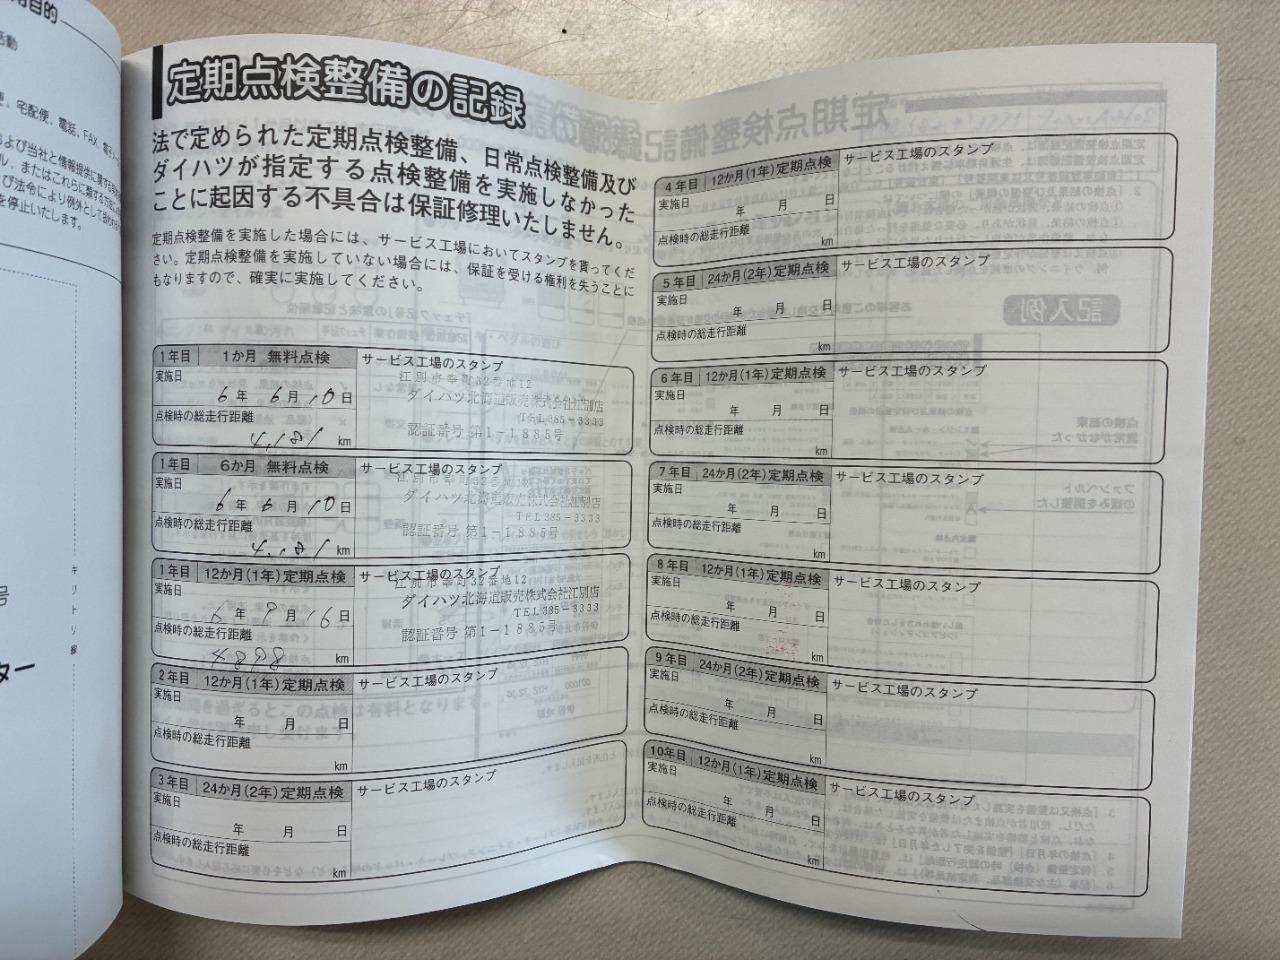 活動
便、宅配便、電話、FAX、電子メー
および当社と情報提供に関する
ル、またはこれらに類する方法
び法令により例外として
を停止いたします。
キリトリ線
号
ター
定期点検整備の記録
法で定められた定期点検整備、日常点検整備及び
ダイハツが指定する点検整備を実施しなかった
ことに起因する不具合は保証修理いたしません。
定期点検整備を実施した場合には、サービス工場においてスタンプを貰ってくだ
さい。定期点検整備を実施していない場合には、保証を受ける権利を失うことに
もなりますので、確実に実施してください。
1年目 1か月 無料点検 サービス工場のスタンプ
実施日
6年 6月 10日
点検時の総走行距離
4,181 km
江別市幸町32番地12
ダイハツ北海道販売株式会社江別店
TEL385-3333
認証番号 第1-1885号
1年目 6か月 無料点検 サービス工場のスタンプ
実施日
6年 6月 10日
点検時の総走行距離
4,181 km
江別市幸町32番地12
ダイハツ北海道販売株式会社江別店
TEL385-3333
認証番号 第1-1885号
1年目 12か月(1年)定期点検 サービス工場のスタンプ
実施日
6年 9月 16日
点検時の総走行距離
4898 km
江別市幸町32番地12
ダイハツ北海道販売株式会社江別店
TEL385-3333
認証番号 第1-1885号
2年目 12か月(1年)定期点検 サービス工場のスタンプ
実施日
年 月 日
点検時の総走行距離
km
3年目 24か月(2年)定期点検 サービス工場のスタンプ
実施日
年 月 日
点検時の総走行距離
km
4年目 12か月(1年)定期点検 サービス工場のスタンプ
実施日
年 月 日
点検時の総走行距離
km
5年目 24か月(2年)定期点検 サービス工場のスタンプ
実施日
年 月 日
点検時の総走行距離
km
6年目 12か月(1年)定期点検 サービス工場のスタンプ
実施日
年 月 日
点検時の総走行距離
km
7年目 24か月(2年)定期点検 サービス工場のスタンプ
実施日
年 月 日
点検時の総走行距離
km
8年目 12か月(1年)定期点検 サービス工場のスタンプ
実施日
年 月 日
点検時の総走行距離
km
9年目 24か月(2年)定期点検 サービス工場のスタンプ
実施日
年 月 日
点検時の総走行距離
km
10年目 12か月(1年)定期点検 サービス工場のスタンプ
実施日
年 月 日
点検時の総走行距離
km